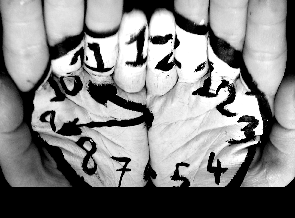 11 12 1
10 2
9 3
8 4
7 5